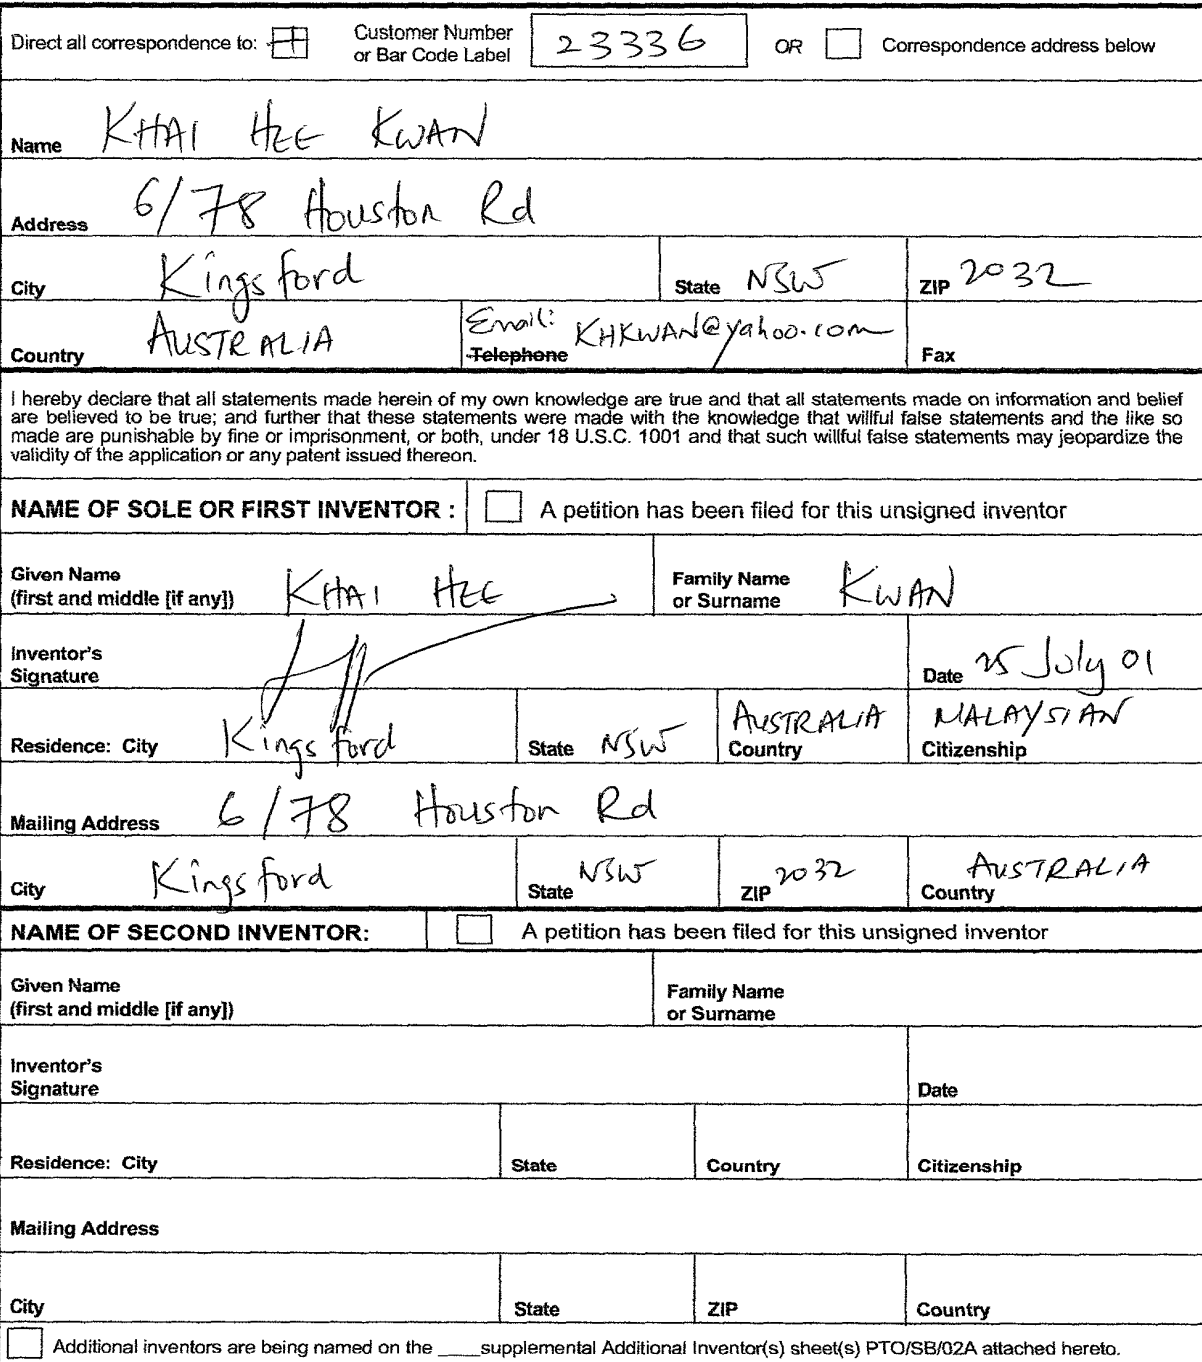 Direct all correspondence to: Customer Number or Bar Code Label 23336 OR Correspondence address below
Name KHAI HEE KWAN
Address 6/78 Houston Rd
City Kingsford State NSW ZIP 2032
Country AUSTRALIA Email: Telephone KHKWAN@yahoo.com Fax
I hereby declare that all statements made herein of my own knowledge are true and that all statements made on information and belief
are believed to be true; and further that these statements were made with the knowledge that willful false statements and the like so
made are punishable by fine or imprisonment, or both, under 18 U.S.C. 1001 and that such willful false statements may jeopardize the
validity of the application or any patent issued thereon.
NAME OF SOLE OR FIRST INVENTOR : A petition has been filed for this unsigned inventor
Given Name
(first and middle [if any]) KHAI HEE Family Name or Surname KWAN
Inventor's
Signature Date 25 July 01
Residence: City Kingsford State NSW AUSTRALIA Country MALAYSIAN Citizenship
Mailing Address 6/78 Houston Rd
City Kingsford State NSW ZIP 2032 Country AUSTRALIA
NAME OF SECOND INVENTOR: A petition has been filed for this unsigned inventor
Given Name
(first and middle [if any]) Family Name or Surname
Inventor's
Signature Date
Residence: City State Country Citizenship
Mailing Address
City State ZIP Country
Additional inventors are being named on the ____supplemental Additional Inventor(s) sheet(s) PTO/SB/02A attached hereto.